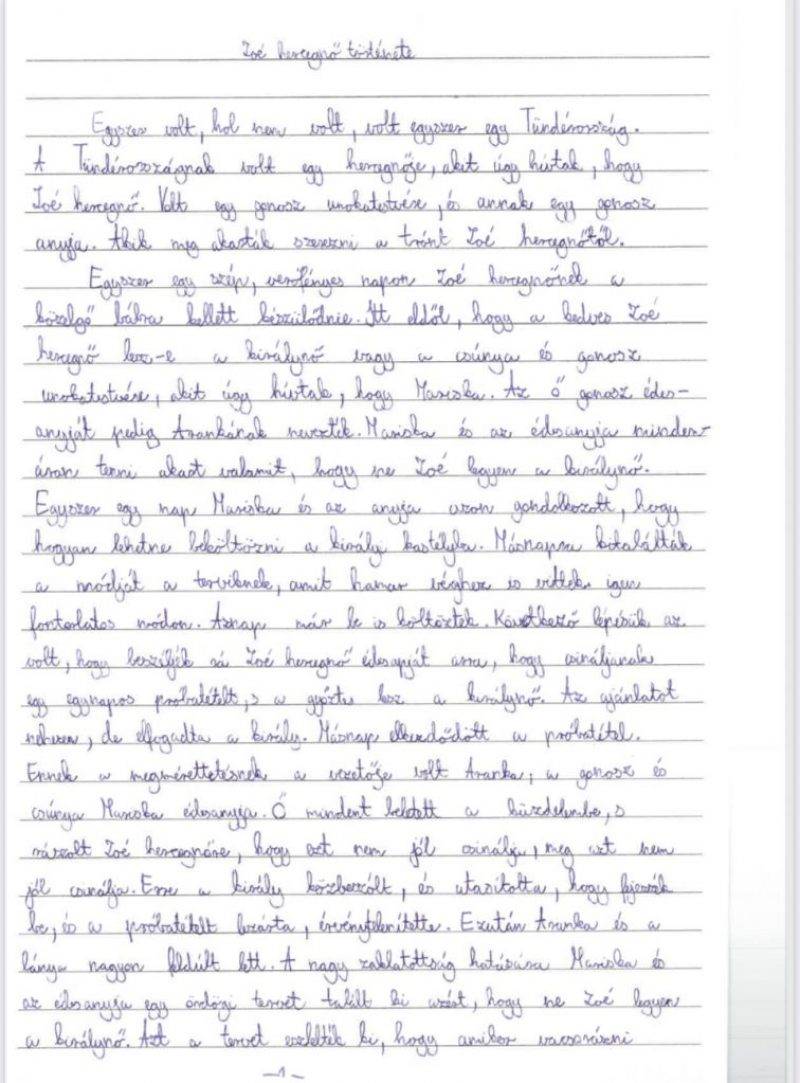 Zoé hercegnő története
Egyszer volt, hol nem volt, volt egyszer egy Tündérország.
A Tündérországnak volt egy hercegnője, akit úgy hívtak, hogy
Zoé hercegnő. Volt egy gonosz unokatestvére, és annak egy gonosz
anyja. Akik meg akarták szerezni a trónt Zoé hercegnőtől.
Egyszer egy szép, verőfényes napon Zoé hercegnőnek a
közelgő bálra kellett készülődnie. Itt eldől, hogy a kedves Zoé
hercegnő lesz-e a királynő vagy a csúnya és gonosz
unokatestvére, akit úgy hívtak, hogy Mariska. Az ő gonosz édes-
anyját pedig Arankának nevezték. Mariska és az édesanyja minden-
áron tenni akart valamit, hogy ne Zoé legyen a királynő.
Egyszer egy nap Mariska és az anyja azon gondolkozott, hogy
hogyan lehetne beköltözni a királyi kastélyba. Másnapra kitalálták
a módját a tervüknek, amit hamar véghez is vittek igen
fontorlatos módon. Aznap már be is költöztek. Következő lépésük az
volt, hogy beszéljék rá Zoé hercegnő édesapját arra, hogy csináljanak
egy egynapos próbatételt, s a győztes lesz a királynő. Az ajánlatot
nehezen, de elfogadta a király. Másnap elkezdődött a próbatétel.
Ennek a megmérettetésnek a vezetője volt Aranka, a gonosz és
csúnya Mariska édesanyja. Ő mindent beletett a küzdelembe, s
rászólt Zoé hercegnőre, hogy ezt nem jól csinálja, meg azt nem
jól csinálja. Erre a király közbeszólt, és utasította, hogy fejezzék
be, és a próbatételt lezárta, érvénytelenítette. Ezután Aranka és a
lánya nagyon feldúlt lett. A nagy zaklatottság hatására Mariska és
az édesanyja egy ördögi tervet talált ki azért, hogy ne Zoé legyen
a királynő. Azt a tervet eszelték ki, hogy amikor vacsorázni
-1-